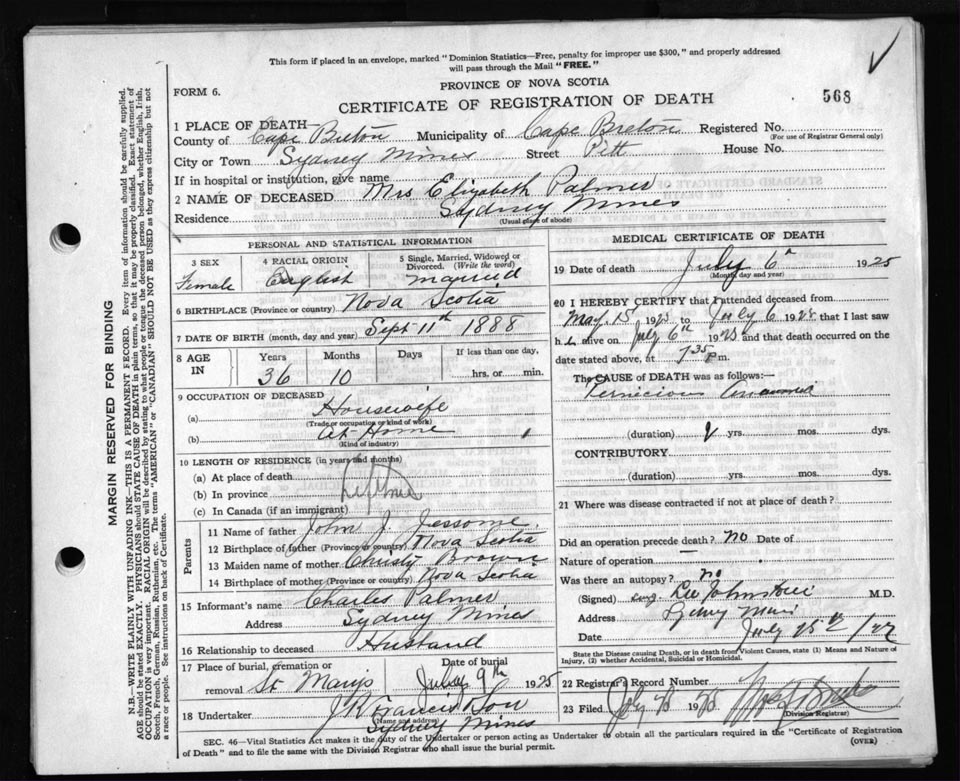 This form if placed in an envelope, marked "Dominion Statistics—Free, penalty for improper use $300," and properly addressed
will pass through the Mail "FREE."
PROVINCE OF NOVA SCOTIA
FORM 6.
CERTIFICATE OF REGISTRATION OF DEATH
568
1 PLACE OF DEATH—
County of Cape Breton Municipality of Cape Breton Registered No.
(For use of Registrar General only)
City or Town Sydney Mines Street Pitt House No.
If in hospital or institution, give name
2 NAME OF DECEASED Mrs Elizabeth Palmer
Residence Sydney Mines
(Usual place of abode)
PERSONAL AND STATISTICAL INFORMATION
3 SEX
Female
4 RACIAL ORIGIN
English
5 Single, Married, Widowed or
Divorced. (Write the word)
married
6 BIRTHPLACE (Province or country) Nova Scotia
7 DATE OF BIRTH (month, day and year) Sept 11th 1888
8 AGE
IN
Years Months Days If less than one day,
36 10 hrs. or min.
9 OCCUPATION OF DECEASED
(a) Housewife
(Trade or occupation or kind of work)
(b) At Home
(Kind of industry)
10 LENGTH OF RESIDENCE (in years and months)
(a) At place of death
(b) In province Lifetime
(c) In Canada (if an immigrant)
Parents
11 Name of father John J. Jessome.
12 Birthplace of father (Province or country) Nova Scotia
13 Maiden name of mother Christy Browne
14 Birthplace of mother (Province or country) Nova Scotia
15 Informant's name Charles Palmer
Address Sydney Mines
16 Relationship to deceased Husband
17 Place of burial, cremation or Date of burial
removal St Marys July 9th 1925
18 Undertaker J K Francis Son
(Name and address)
Sydney Mines
MEDICAL CERTIFICATE OF DEATH
19 Date of death July 6th 1925
(Month, day and year)
20 I HEREBY CERTIFY that I attended deceased from
May 15 1925 to July 6 1925 that I last saw
h alive on July 6th 1925 and that death occurred on the
date stated above, at 7.35 P.m.
The CAUSE OF DEATH was as follows:—
Pernicious Anaemia
(duration) yrs. mos. dys.
CONTRIBUTORY
(duration) yrs. mos. dys.
21 Where was disease contracted if not at place of death?
Did an operation precede death? no Date of
Nature of operation
Was there an autopsy? no
(Signed) M.D.
Address Sydney Mines
Date July 25th
State the Disease causing Death, or in death from Violent Causes, state (1) Means and Nature of
Injury, (2) whether Accidental, Suicidal or Homicidal.
22 Registrar's Record Number
23 Filed July 1925
(Division Registrar)
SEC. 46—Vital Statistics Act makes it the duty of the Undertaker or person acting as Undertaker to obtain all the particulars required in the "Certificate of Registration
of Death" and to file the same with the Division Registrar who shall issue the burial permit. (OVER)
MARGIN RESERVED FOR BINDING
N.B.—WRITE PLAINLY WITH UNFADING INK—THIS IS A PERMANENT RECORD. Every item of information should be carefully supplied.
AGE should be stated EXACTLY. PHYSICIANS should STATE CAUSE OF DEATH in plain terms, so that it may be properly classified. Exact statement of
OCCUPATION is very important. RACIAL ORIGIN will be described by stating to what people or tongue the deceased person belonged, whether English, Irish,
Scotch, French, German, Russian, Ruthenian, etc. The terms "AMERICAN" or "CANADIAN" SHOULD NOT BE USED as they express citizenship but not
a race or people. See instructions on back of Certificate.